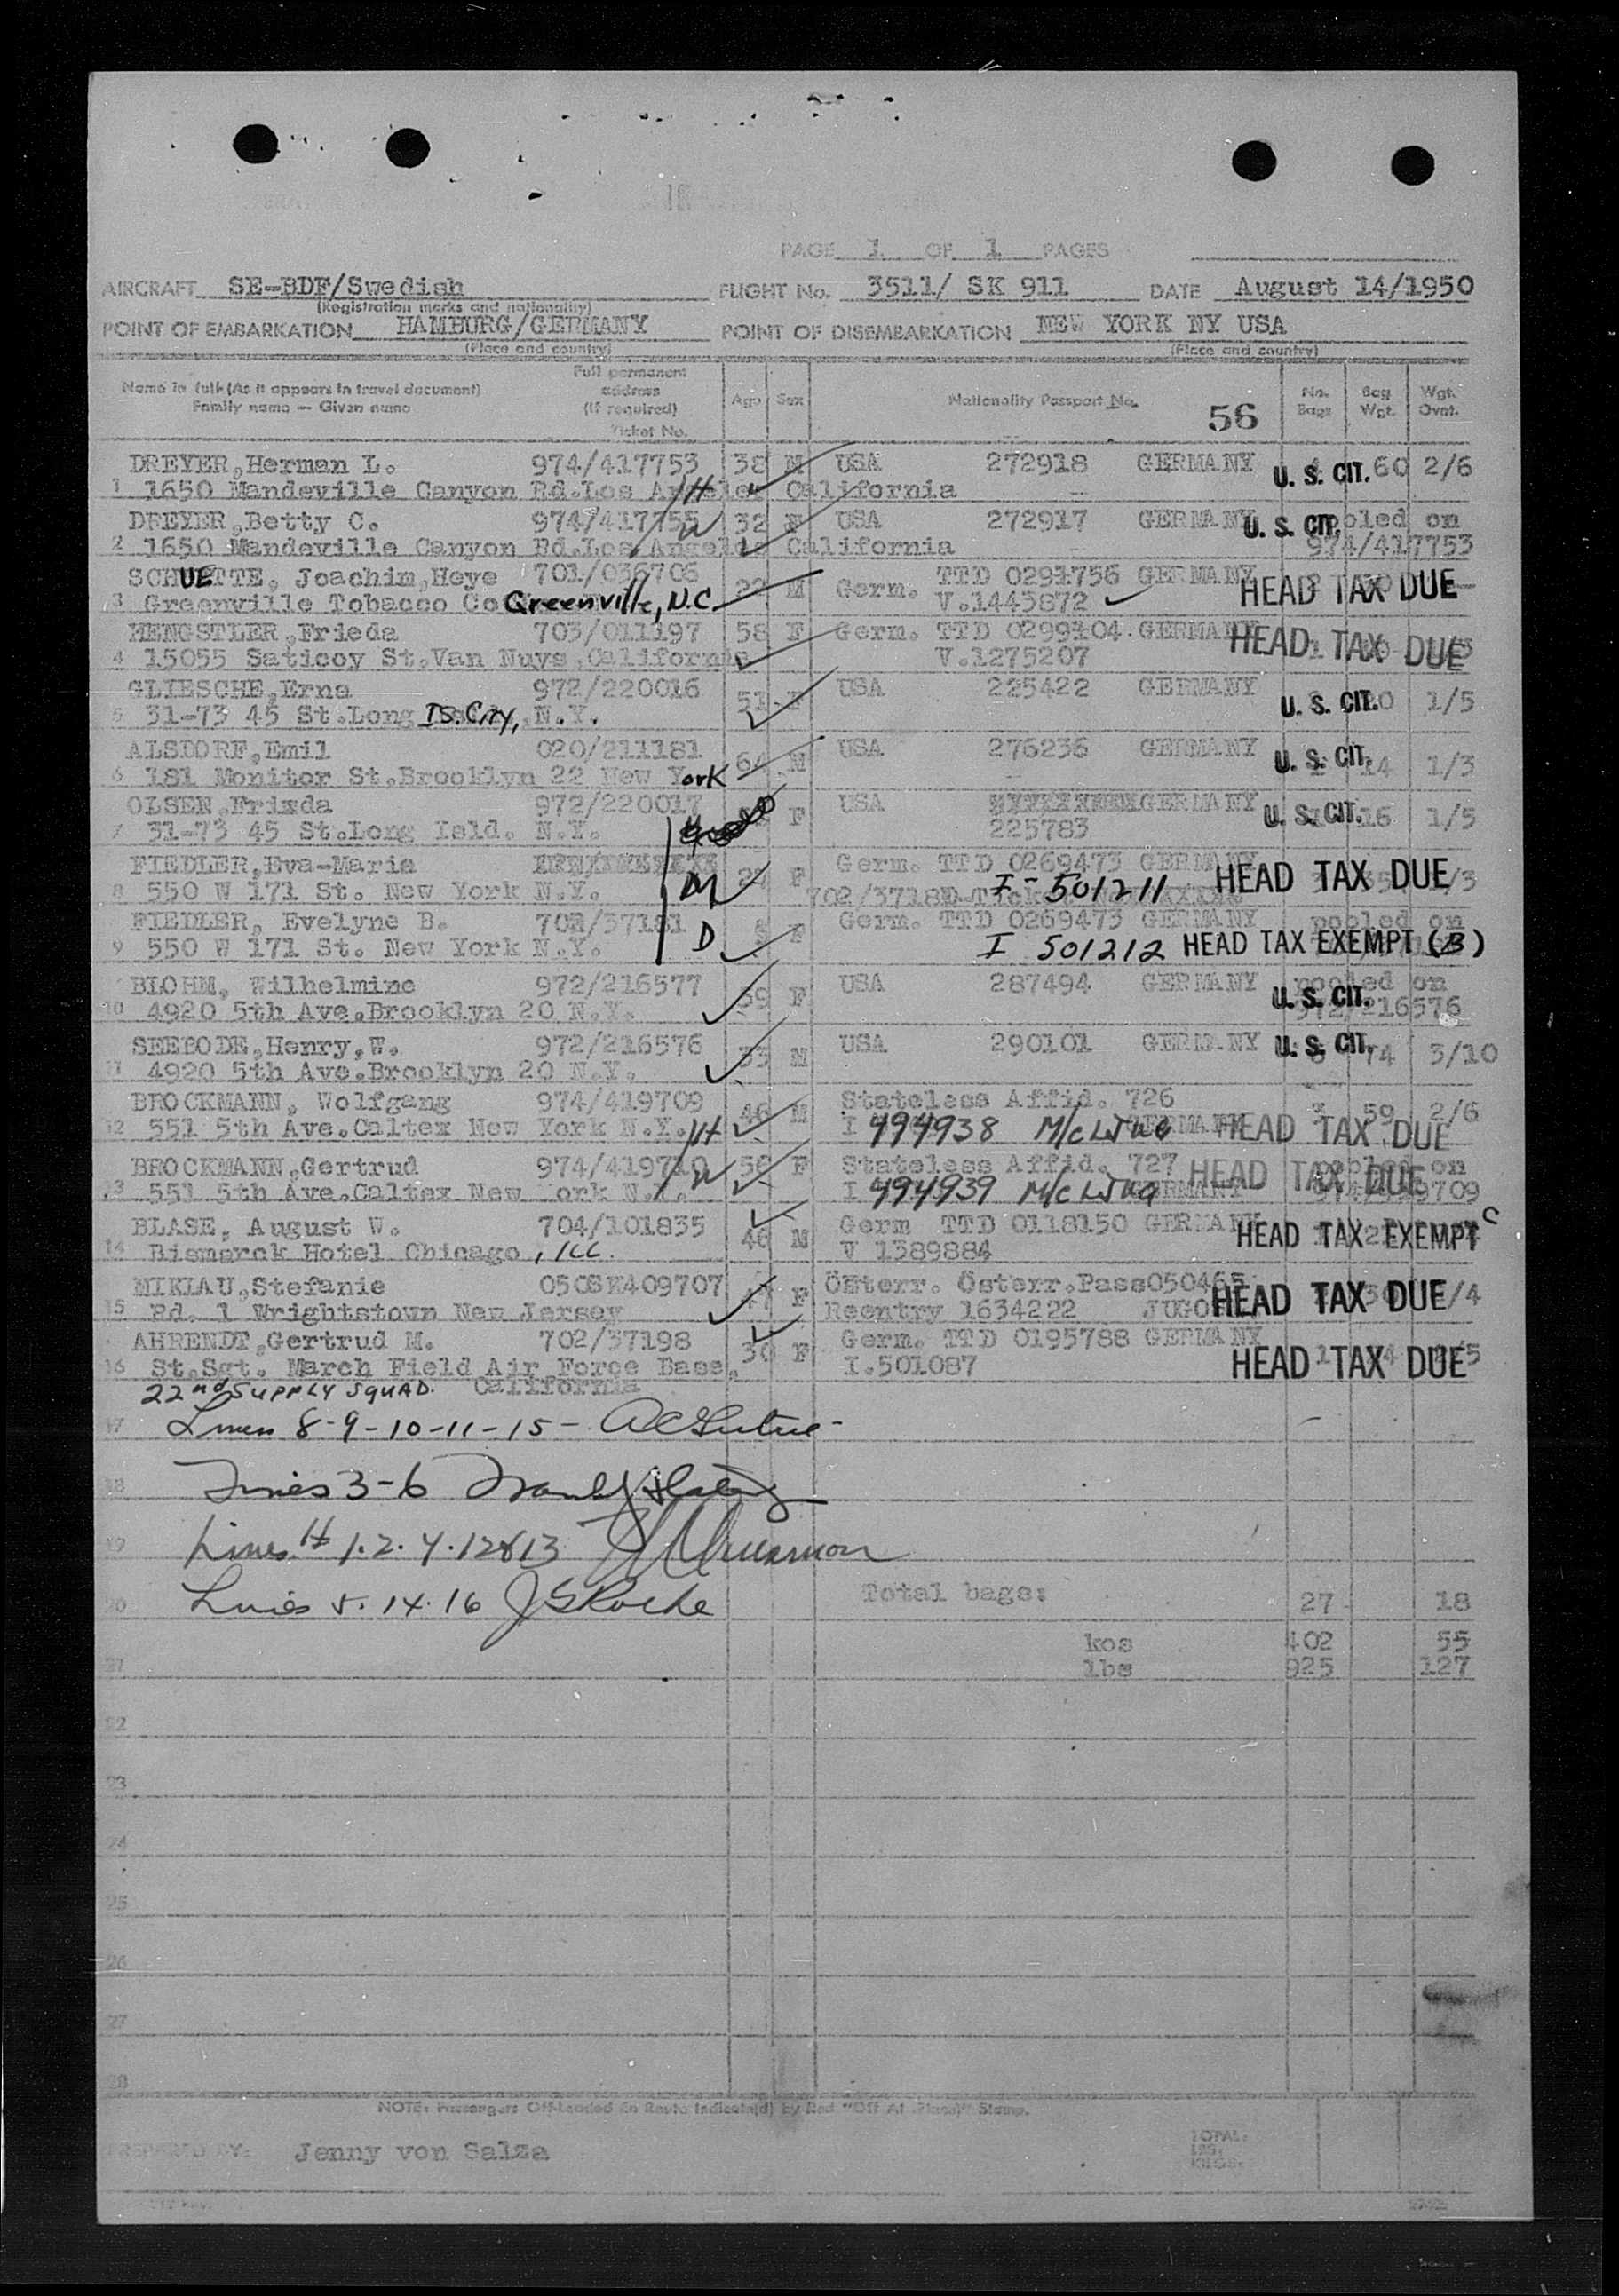 PAGE 1 OF 1 PAGES
AIRCRAFT SE-BDF/Swedish FLIGHT No. 3511/ SK 911 DATE August 14/1950
(Registration marks and nationality)
POINT OF EMBARKATION HAMBURG/GERMANY POINT OF DISEMBARKATION NEW YORK NY USA
(Place and country) (Place and country)
Name in full (As it appears in travel document) Family name — Given name Full permanent address (If required) Ticket No. Age Sex Nationality Passport No. 56 No. Bags Bag Wgt. Wgt. Ovnt.
DREYER, Herman L. 974/417753 38 M USA 272918 GERMANY U. S. CIT. 60 2/6
1 1650 Mandeville Canyon Rd.Los Angeles California H
DREYER, Betty C. 974/417755 W 32 F USA 272917 GERMANY U. S. CIT. pooled on
2 1650 Mandeville Canyon Rd.Los Angeles California 974/417753
SCHUETTE, Joachim, Heye 701/036706 M Germ. TTD 0291756 GERMANY HEAD TAX DUE
3 Greenville Tobacco Co Greenville, N.C. V.1445872
HENGSTLER, Frieda 703/011197 58 F Germ. TTD 0299104. GERMANY HEAD TAX DUE
4 15055 Saticoy St.Van Nuys, California V.1275207
GLIESCHE, Erna 972/220016 51 F USA 225422 GERMANY U. S. CIT. 1/5
5 31-73 45 St.Long IS. CITY, N.Y.
ALSDORF, Emil 020/211181 64 M USA 276236 GERMANY U. S. CIT. 14 1/3
6 181 Monitor St.Brooklyn 22 New York
OLSEN, Frieda 972/220017 F USA GERMANY U. S. CIT. 16 1/5
7 31-73 45 St.Long Isld. N.Y. 225783
FIEDLER, Eva-Maria 24 F Germ. TTD 0269473 GERMANY HEAD TAX DUE
8 550 W 171 St. New York N.Y. M I-501211
FIEDLER, Evelyne B. 702/37181 F Germ. TTD 0269473 GERMANY pooled on
9 550 W 171 St. New York N.Y. D I 501212 HEAD TAX EXEMPT (B)
BLOHM, Wilhelmine 972/216577 59 F USA 287494 GERMANY pooled on
10 4920 5th Ave.Brooklyn 20 N.Y. U. S. CIT. 972/216576
SEEBODE, Henry, W. 972/216576 33 M USA 290101 GERMANY U. S. CIT. 74 3/10
11 4920 5th Ave.Brooklyn 20 N.Y.
BROCKMANN, Wolfgang 974/419709 46 M Stateless Affid. 726 3 59 2/6
12 551 5th Ave.Caltex New York N.Y. H I 494938 GERMANY HEAD TAX DUE
BROCKMANN, Gertrud 974/419710 50 F Stateless Affid. 727 HEAD TAX DUE pooled on
13 551 5th Ave.Caltex New York N.Y. W I 494939 GERMANY 974/419709
BLASE, August W. 704/101835 46 M Germ TTD 0118150 GERMANY HEAD TAX EXEMPT C
14 Bismarck Hotel Chicago, ILL. V 1389884
MIKLAU, Stefanie 050SK409707 47 F Österr. Österr.Pass050465 HEAD TAX DUE /4
15 Rd. 1 Wrightstown New Jersey Reentry 1634222
AHRENDT, Gertrud M. 702/37198 30 F Germ. TTD 0195788 GERMANY HEAD TAX DUE
16 St.Sgt. March Field Air Force Base, I.501087
22nd SUPPLY SQUAD. California
17 Lines 8-9-10-11-15-
18 Lines 3-6
19 Lines # 1.2.4.12&13
20 Lines 5.14.16 J G Roche Total bags: 27 18
kos 402 55
21 lbs 925 127
22
23
24
25
26
27
28
NOTE: Passengers Off-Loaded En Route Indicate(d) by Red "Off At (Place)" Stamp.
PREPARED BY: Jenny von Salza TOTAL:
LBS.
KILOS.